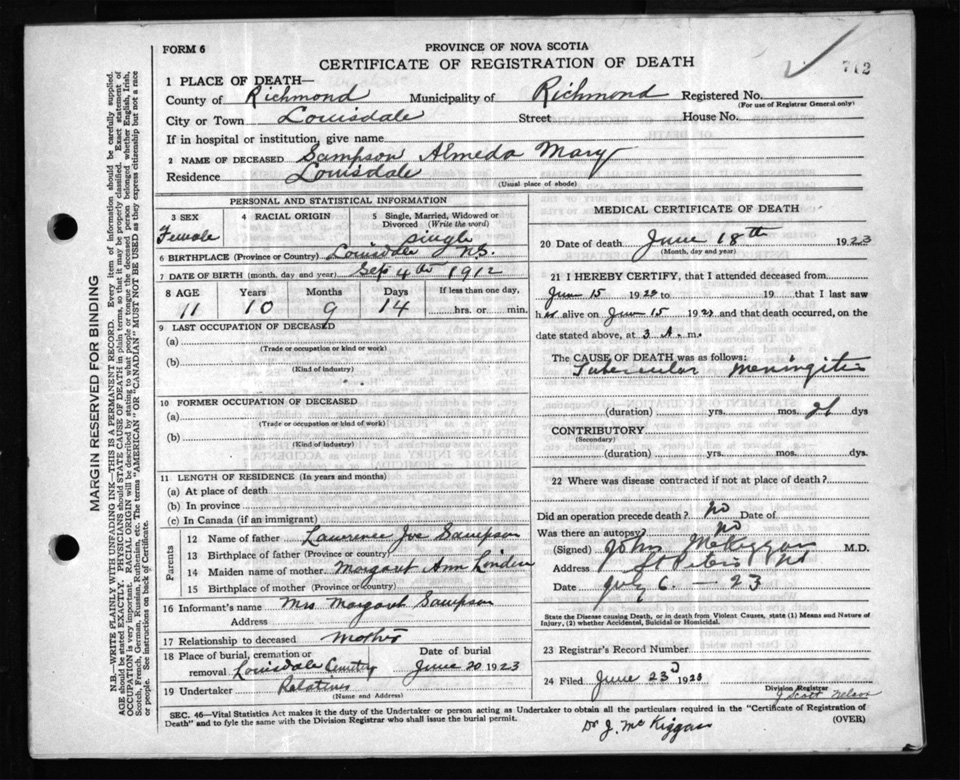 FORM 6
PROVINCE OF NOVA SCOTIA
CERTIFICATE OF REGISTRATION OF DEATH
712
1 PLACE OF DEATH—
County of Richmond Municipality of Richmond Registered No.
(For use of Registrar General only)
City or Town Louisdale Street House No.
If in hospital or institution, give name
2 NAME OF DECEASED Sampson Almeda Mary
Residence Louisdale
(Usual place of abode)
PERSONAL AND STATISTICAL INFORMATION
3 SEX 4 RACIAL ORIGIN 5 Single, Married, Widowed or
Divorced (Write the word)
Female single
6 BIRTHPLACE (Province or Country) Louisdale N.S.
7 DATE OF BIRTH (month, day and year) Sep 4th 1912
8 AGE Years Months Days If less than one day,
11 10 9 14 hrs. or min.
9 LAST OCCUPATION OF DECEASED
(a)
(Trade or occupation or kind or work)
(b)
(Kind of industry)
10 FORMER OCCUPATION OF DECEASED
(a)
(Trade or occupation or kind of work)
(b)
(Kind of industry)
11 LENGTH OF RESIDENCE (In years and months)
(a) At place of death
(b) In province
(c) In Canada (if an immigrant)
Parents
12 Name of father Lawrence Joe Sampson
13 Birthplace of father (Province or country)
14 Maiden name of mother Margaret Ann
15 Birthplace of mother (Province or country)
16 Informant's name Mrs Margaret Sampson
Address
17 Relationship to deceased Mother
18 Place of burial, cremation or Date of burial
removal Louisdale Cemetry June 20 1923
19 Undertaker Relatives
(Name and Address)
MEDICAL CERTIFICATE OF DEATH
20 Date of death June 18th 1923
(Month, day and year)
21 I HEREBY CERTIFY, that I attended deceased from
June 15 19 to 19 that I last saw
h alive on June 15 19 and that death occurred, on
date stated above, at 3 A. m.
The CAUSE OF DEATH was as follows:
Tubercular Meningitis
(duration) yrs. mos. 21 dys
CONTRIBUTORY
(Secondary)
(duration) yrs. mos. dys.
22 Where was disease contracted if not at place of death?
Did an operation precede death? No Date of
Was there an autopsy No
(Signed) John McKiggan M.D.
Address St Peters NS
Date July 6 - 23
State the Disease causing Death, or in death from Violent Causes, state (1) Means and Nature of
Injury, (2) whether Accidental, Suicidal or Homicidal.
23 Registrar's Record Number
24 Filed June 23 1923
Division Registrar
J Scott Nelson
SEC. 46—Vital Statistics Act makes it the duty of the Undertaker or person acting as Undertaker to obtain all the particulars required in the "Certificate of Registration of
Death" and to fyle the same with the Division Registrar who shall issue the burial permit.
(OVER)
Dr J. McKiggan
MARGIN RESERVED FOR BINDING
N.B.—WRITE PLAINLY WITH UNFADING INK—THIS IS A PERMANENT RECORD. Every item of information should be carefully supplied.
AGE should be stated EXACTLY. PHYSICIANS should STATE CAUSE OF DEATH in plain terms, so that it may be properly classified. Exact statement of
OCCUPATION is very important. RACIAL ORIGIN will be described by stating to what people or tongue the deceased person belonged whether English, Irish,
Scotch, French, German, Russian, Ruthenian, etc. The terms "AMERICAN" OR "CANADIAN" MUST NOT BE USED as they express citizenship but not a race
or people. See instructions on back of Certificate.